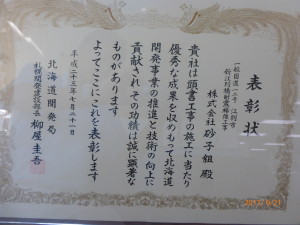 表彰状
一般国道一二号 江別市
株式会社 砂子組 殿
貴社は頭書工事の施工に当たり
優秀な成果を収めもって北海道
開発事業の推進と技術の向上に
貢献されその功績は誠に顕著な
ものがあります
よってここにこれを表彰します
平成二十三年七月二十一日
北海道開発局
札幌開発建設部長 柳屋圭吾